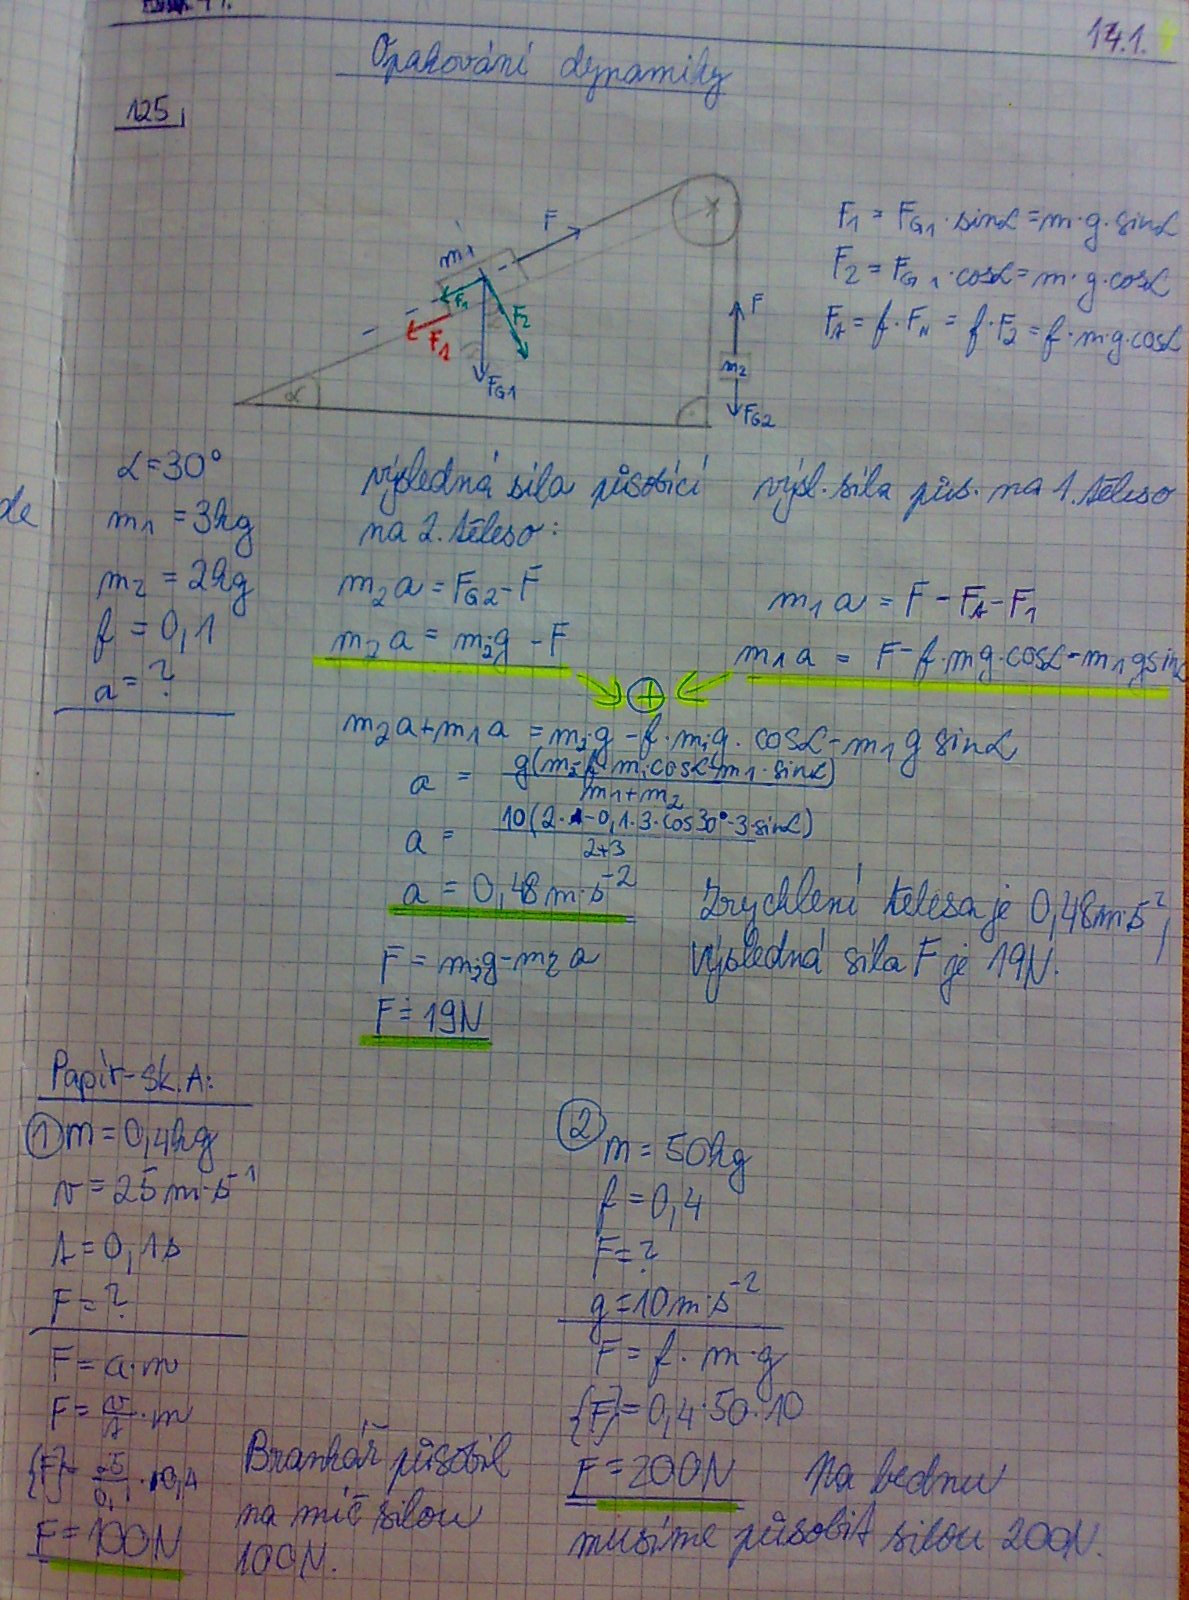 14.1.
Opakování dynamiky
125,
F₁ = F_G1 · sinα = m·g·sinα
F₂ = F_G1 · cosα = m·g·cosα
F_t = f·F_N = f·F₂ = f·m·g·cosα
F
m₁
F₁
F₂
F₁
F_G1
α
F
m₂
F_G2
de
α = 30°
m₁ = 3kg
m₂ = 2kg
f = 0,1
a = ?
výsledná síla působící
na 2. těleso:
m₂a = F_G2 - F
m₂a = m₂g - F
výsl. síla půs. na 1. těleso
m₁a = F - F_t - F₁
m₁a = F - f·mg·cosα - m₁gsinα
+
m₂a + m₁a = m₂·g - f·m₁g·cosα - m₁g sinα
a = g(m₂-f·m₁cosα-m₁·sinα) / m₁+m₂
a = 10(2·1-0,1·3·cos30°-3·sinα) / 2+3
a = 0,48 m·s⁻²
Zrychlení tělesa je 0,48 m·s⁻²,
F = m₂g - m₂a
výsledná síla F je 19N.
F = 19N
Papír-sk.A:
① m = 0,4kg
v = 25 m·s⁻¹
t = 0,1s
F = ?
F = a·m
F = v/t · m
{F} = 25/0,1 · 0,4
F = 100N
Brankář působil
na míč silou
100N.
② m = 50kg
f = 0,4
F = ?
g = 10 m·s⁻²
F = f·m·g
{F} = 0,4·50·10
F = 200N
Na bednu
musíme působit silou 200N.